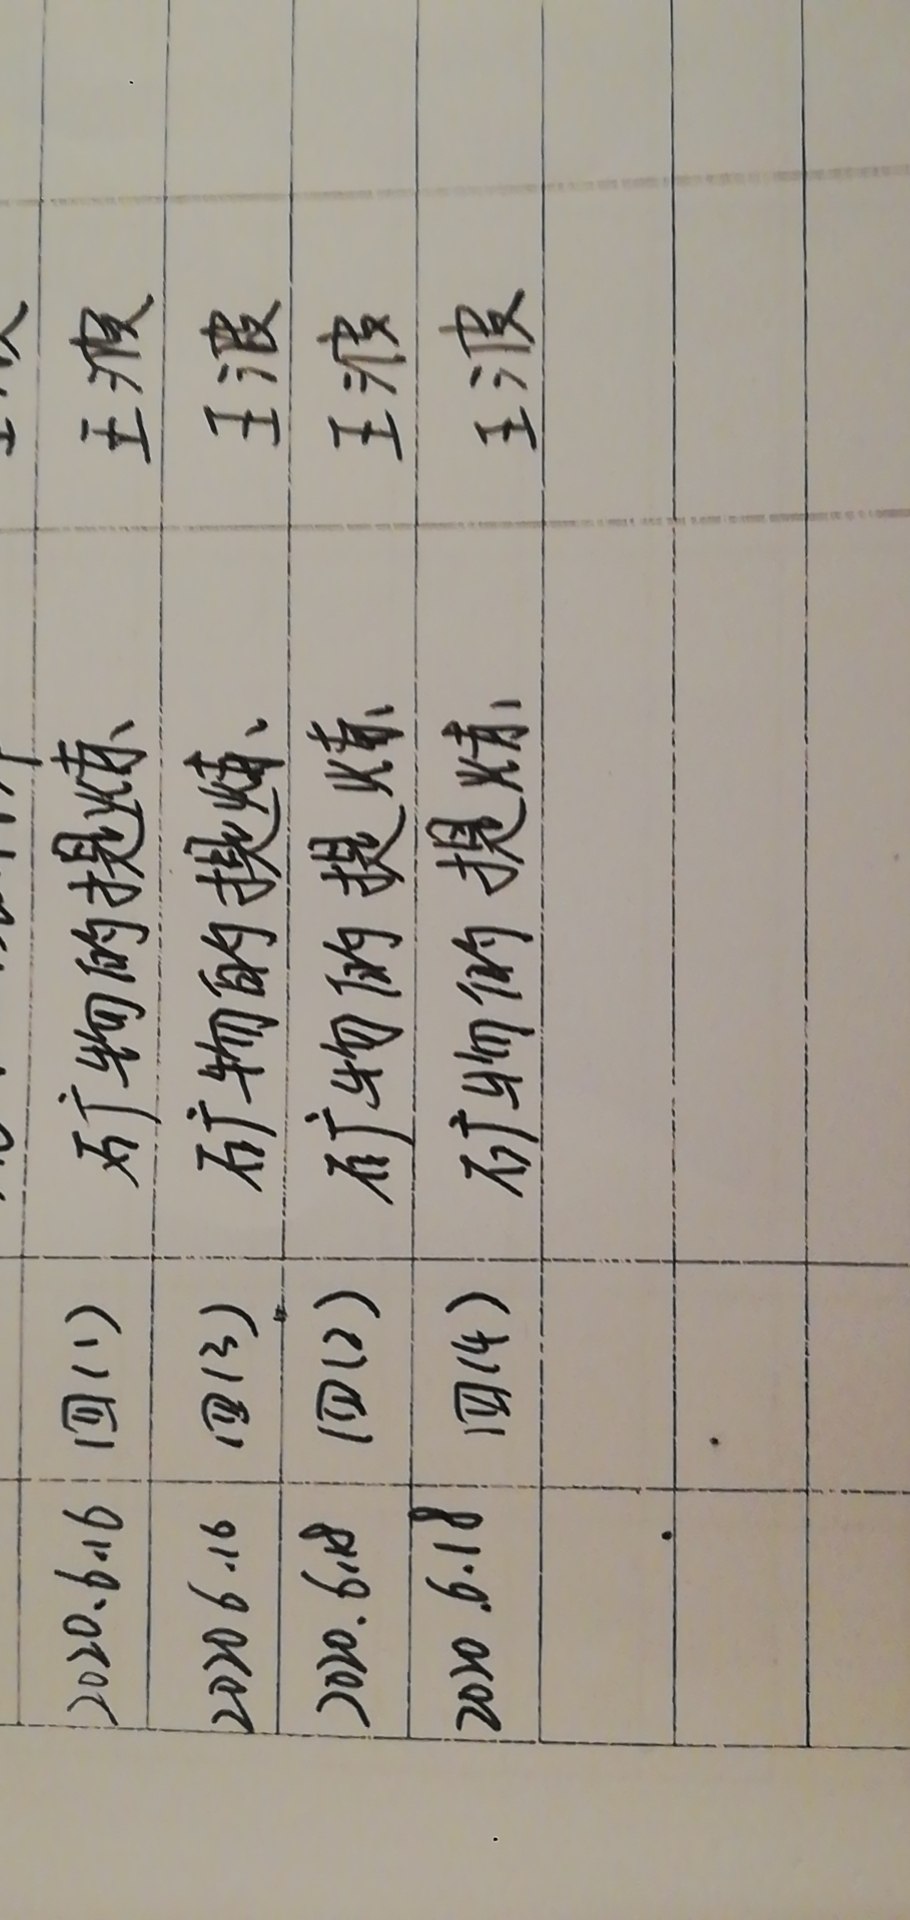 2020.6.16 四(1) 矿物的提炼、 王波
2020 6.16 四(3) 矿物的提炼、 王波
2020.6.18 四(2) 矿物的提炼、 王波
2020.6.18 四(4) 矿物的提炼、 王波